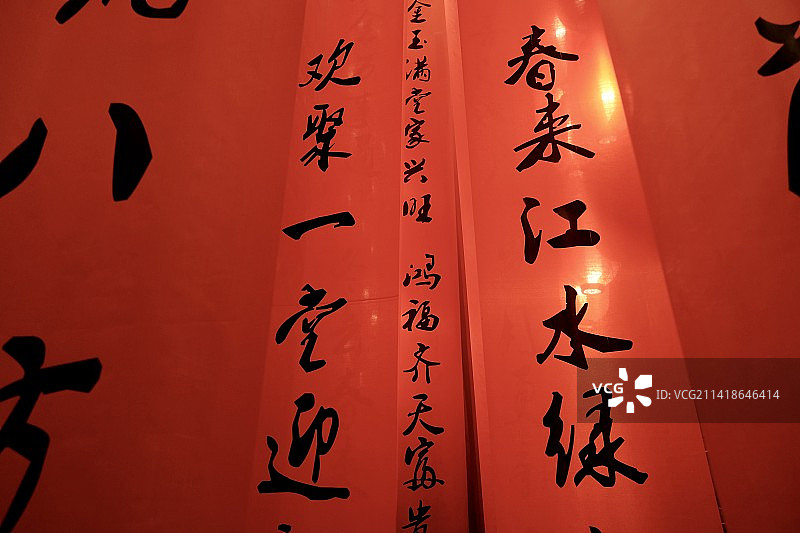 春来江水绿
金玉满堂家兴旺 鸿福齐天富贵
欢聚一堂迎
八方
VCG
ID: VCG211418646414